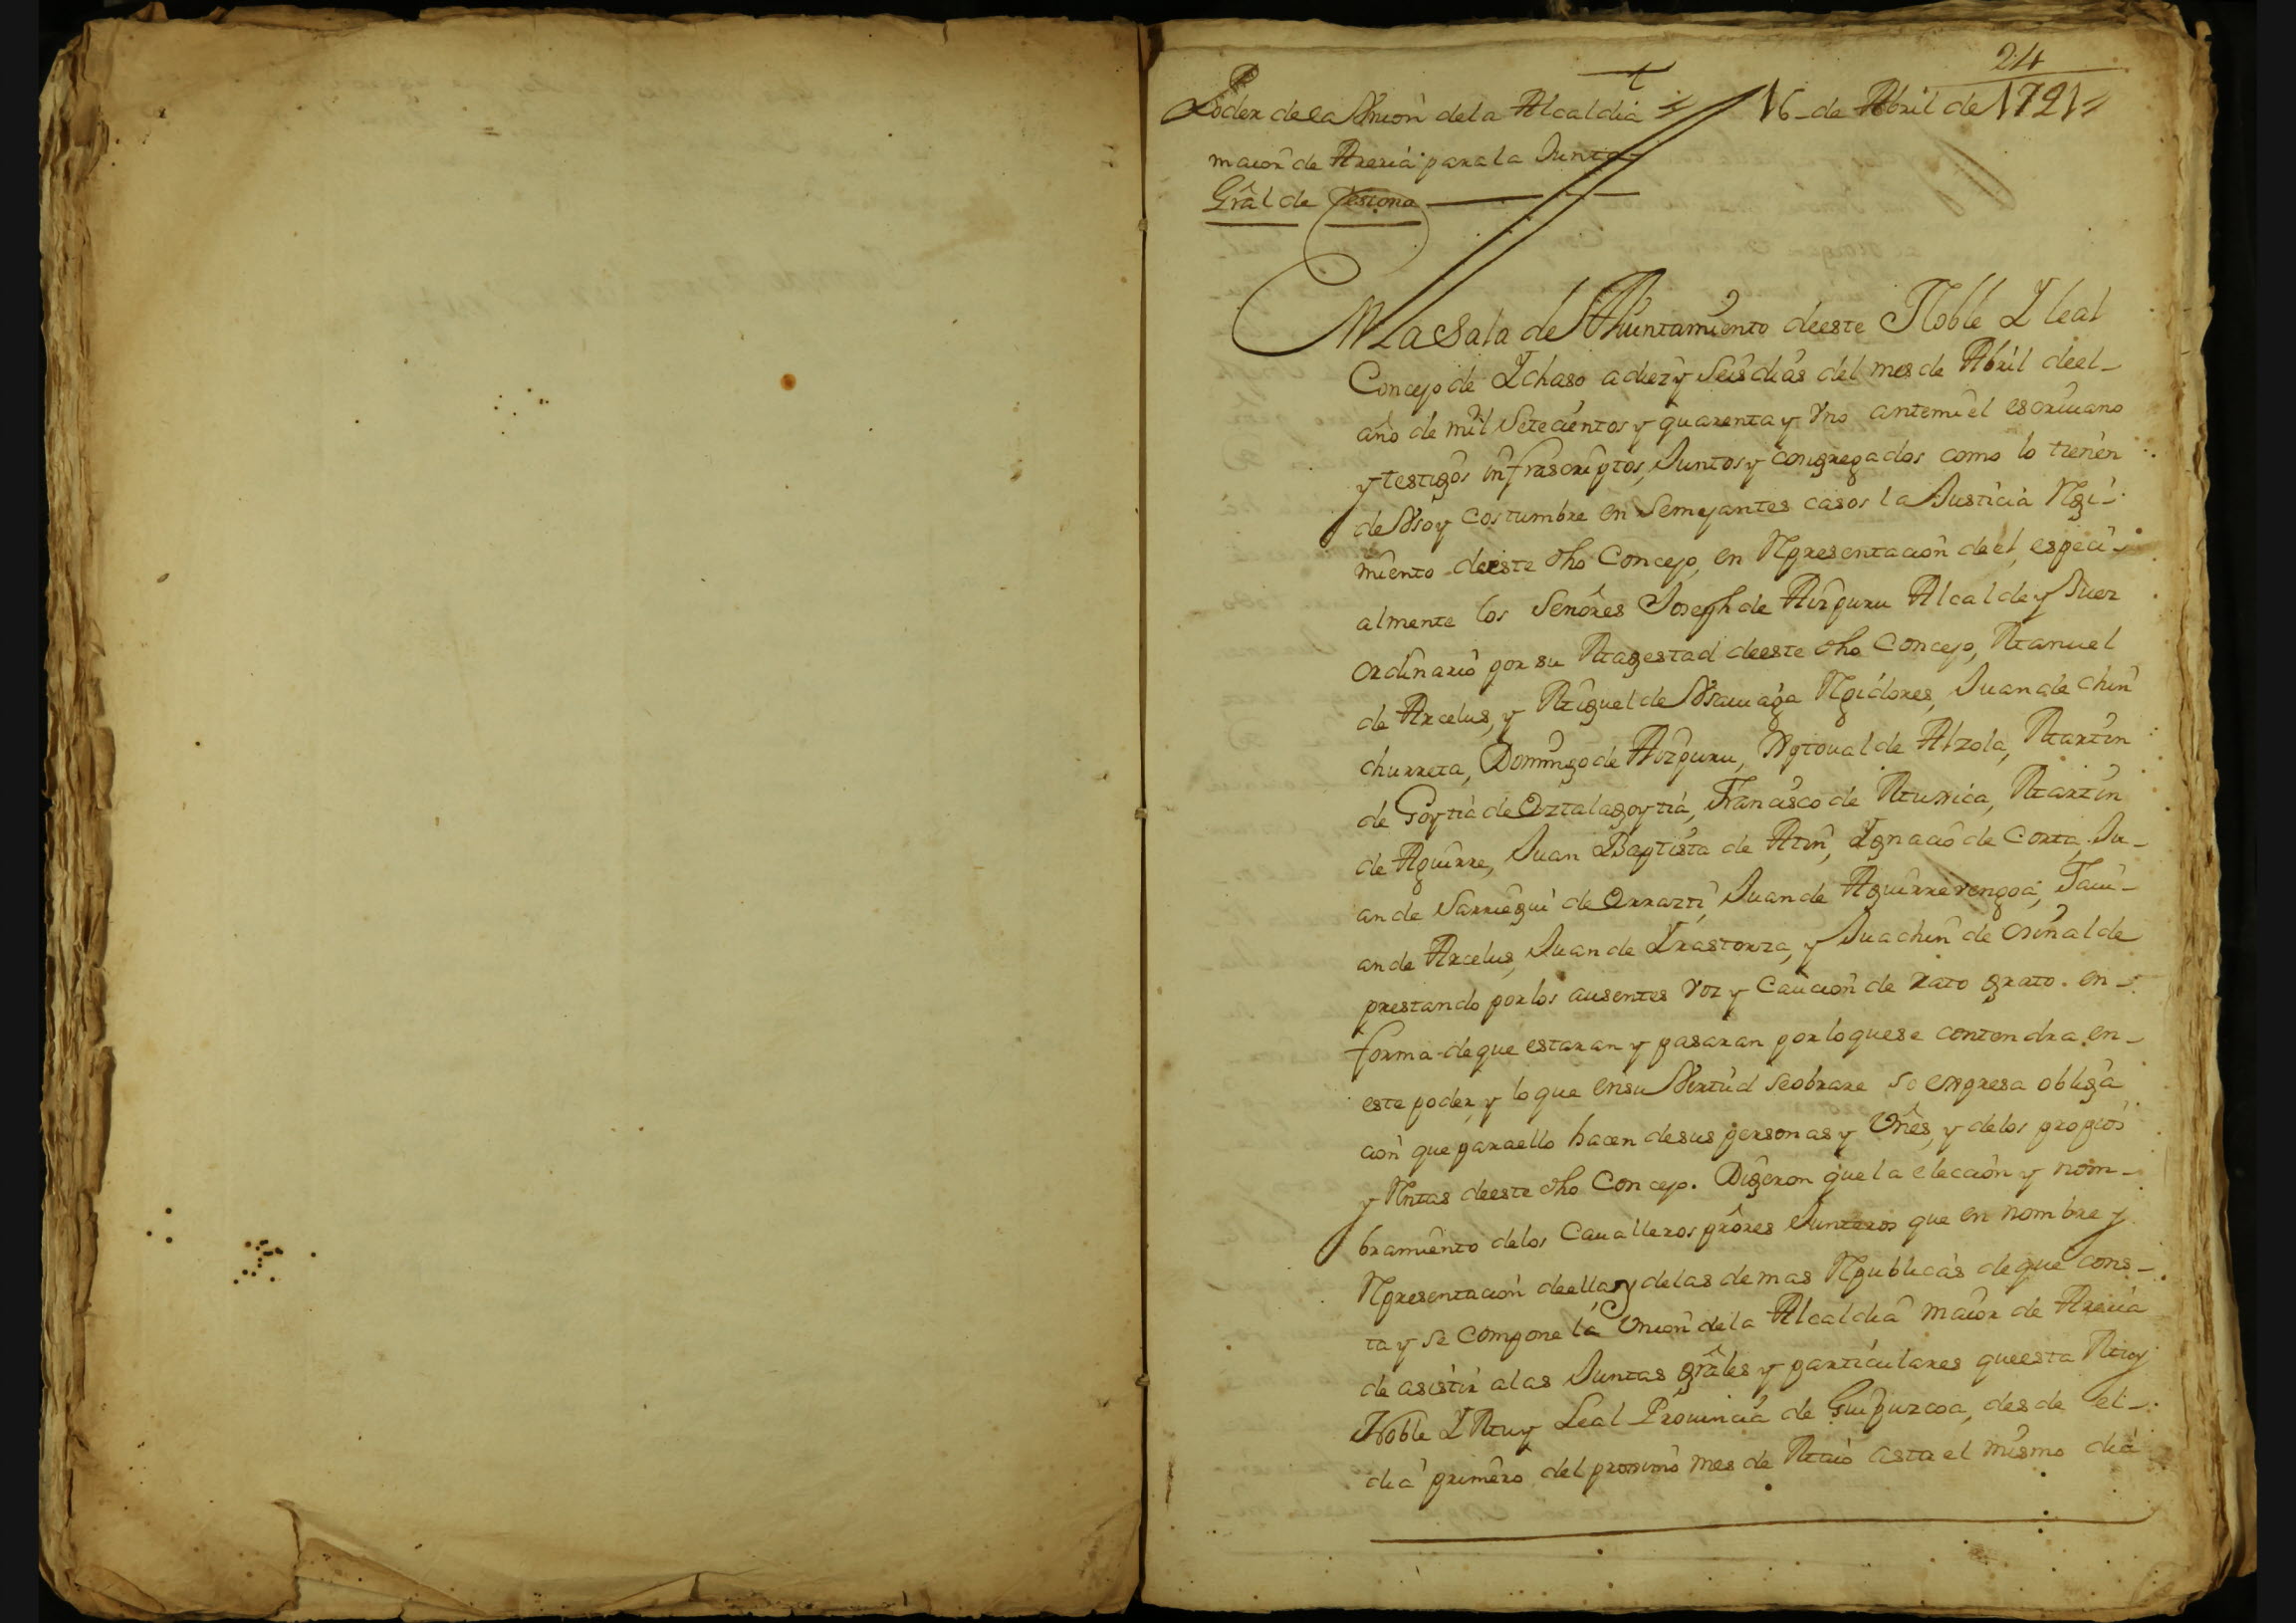 24
Poder de la Vnion dela Alcaldia 16 de Abril de 1741
maior de Areria para la Junta
Grâl de Cestona
En La Sala de Aiuntamiento deeste Noble Y leal
Concejo de Ychaso a diez y Seis dias del mes de Abril deel
año de mil Setecientos y quarenta y Vno ante mi el escriuano
y testigos infrascriptos, Juntos y congregados como lo tienen
de Vso y costumbre en Semejantes casos la Justicia Rgi-
miento deeste dho Concejo, en Rpresentacion de el, especi-
almente los Señores Joseph de Aizpuru Alcalde y Juez
ordinario por su Magestad deeste dho Concejo, Manuel
de Arcelus, y Miguel de Vsauiaga Rgidores, Juan de chin
churreta, Domingo de Aizpuru, Xptoual de Alzola, Martin
de Goytia de Oztalagoytia, Francisco de Muxica, Martin
de Aguirre, Juan Baptista de Atin, Ygnacio de Corta, Ju-
an de Sarriegui de Orrazti, Juan de Aguirrevengoa, Faui-
an de Arcelus, Juan de Yrastorza, y Juachin de Osinalde
prestando por los ausentes voz y Caucion de rato grato. en
forma de que estaran y pasaran por lo que se contendra en
este poder, y lo que en su Virtud se obrare so expresa obliga
cion que para ello hacen de sus personas y Vnês, y de los propios
y Rntas deeste dho Concejo. Digeron que la eleccion y nom-
bramiento delos Caualleros prôres Junteros que en nombre y
Rpresentacion de ella, y de las demas Rpublicas de que cons-
ta y se compone la Vnion dela Alcaldia maior de Areria
de asistir a las Juntas grâles y particulares que esta Muy
Noble Y Muy Leal Prouincia de Guipuzcoa, desde el
dia primero del proximo mes de Maio asta el mismo dia